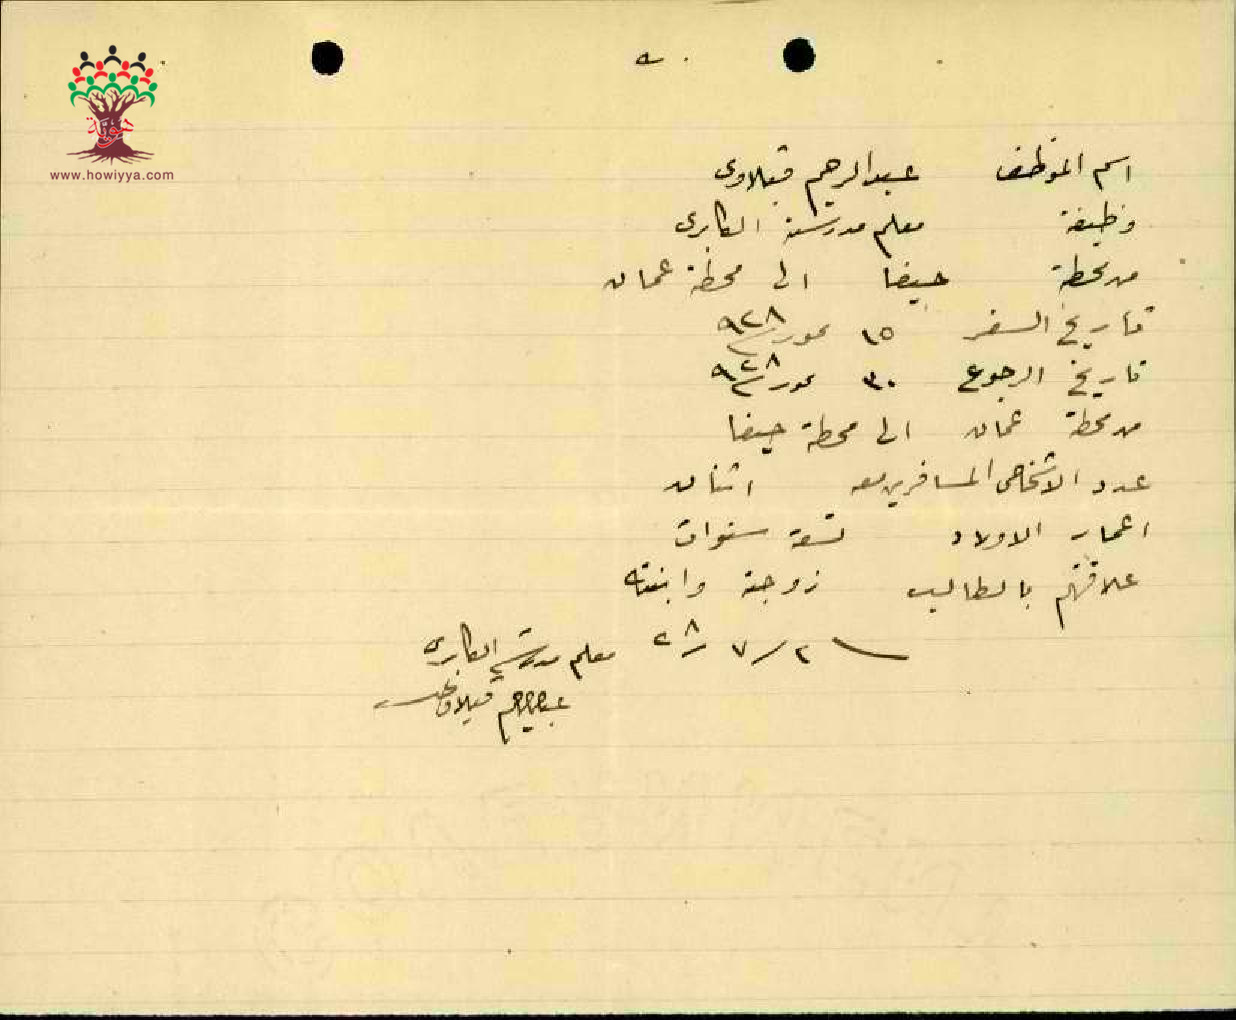 هوية
www.howiyya.com
اسم الموظف عبدالرحيم قبلاوي
وظيفة معلم مدرسة الكابري
من محطة حيفا الى محطة عمان
تاريخ السفر ١٥ تموز سنة ٩٢٨
تاريخ الرجوع ٣٠ تموز سنة ٩٢٨
من محطة عمان الى محطة حيفا
عدد الاشخاص المسافرين معه اثنان
اعمار الاولاد تسعة سنوات
علاقتهم بالطالب زوجة وابنته
٢ / ٧ / ٢٨ معلم مدرسة الكابري
عبدالرحيم قبلاوي